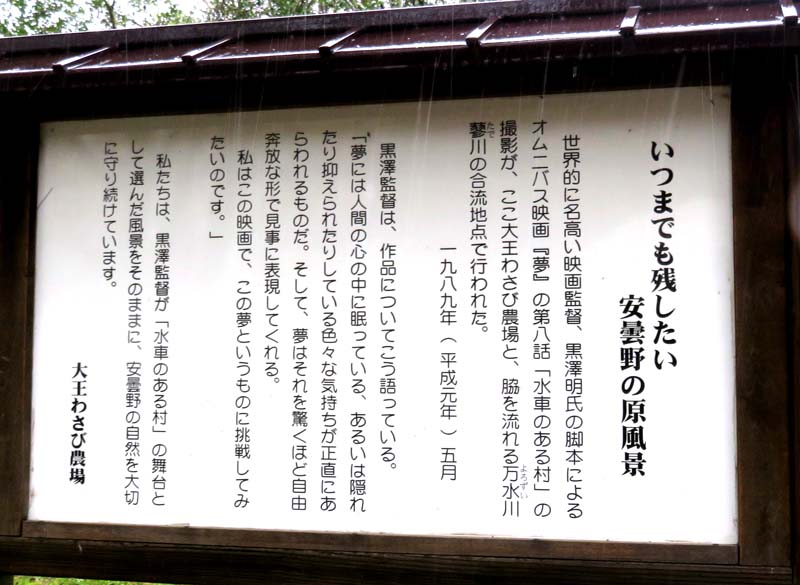 いつまでも残したい
安曇野の原風景
世界的に名高い映画監督、黒澤明氏の脚本による
オムニバス映画『夢』の第八話「水車のある村」の
撮影が、ここ大王わさび農場と、脇を流れる万水川
よろずい
蓼川の合流地点で行われた。
たで
一九八九年(平成元年)五月
黒澤監督は、作品についてこう語っている。
“夢には人間の心の中に眠っている、あるいは隠れ
たり抑えられたりしている色々な気持ちが正直にあ
らわれるものだ。そして、夢はそれを驚くほど自由
奔放な形で見事に表現してくれる。
私はこの映画で、この夢というものに挑戦してみ
たいのです。」
私たちは、黒澤監督が「水車のある村」の舞台と
して選んだ風景をそのままに、安曇野の自然を大切
に守り続けています。
大王わさび農場